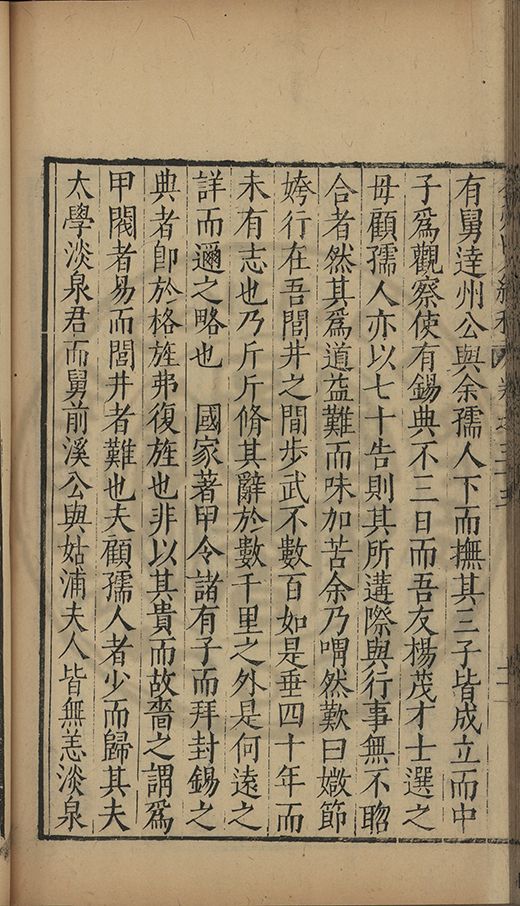 有舅達州公與余孺人下而撫其三子皆成立而中
子為觀察使有錫典不三日而吾友楊茂才士選之
母顧孺人亦以七十告則其所遘際與行事無不聢
合者然其為道益難而味加苦余乃喟然歎曰媺節
姱行在吾閭井之間步武不數百如是垂四十年而
未有志也乃斤斤脩其辭於數千里之外是何遠之
詳而邇之略也　國家著甲令諸有子而拜封錫之
典者卽於格旌弗復旌也非以其貴而故嗇之謂為
甲閥者易而閭井者難也夫顧孺人者少而歸其夫
太學淡泉君而舅前溪公與姑浦夫人皆無恙淡泉